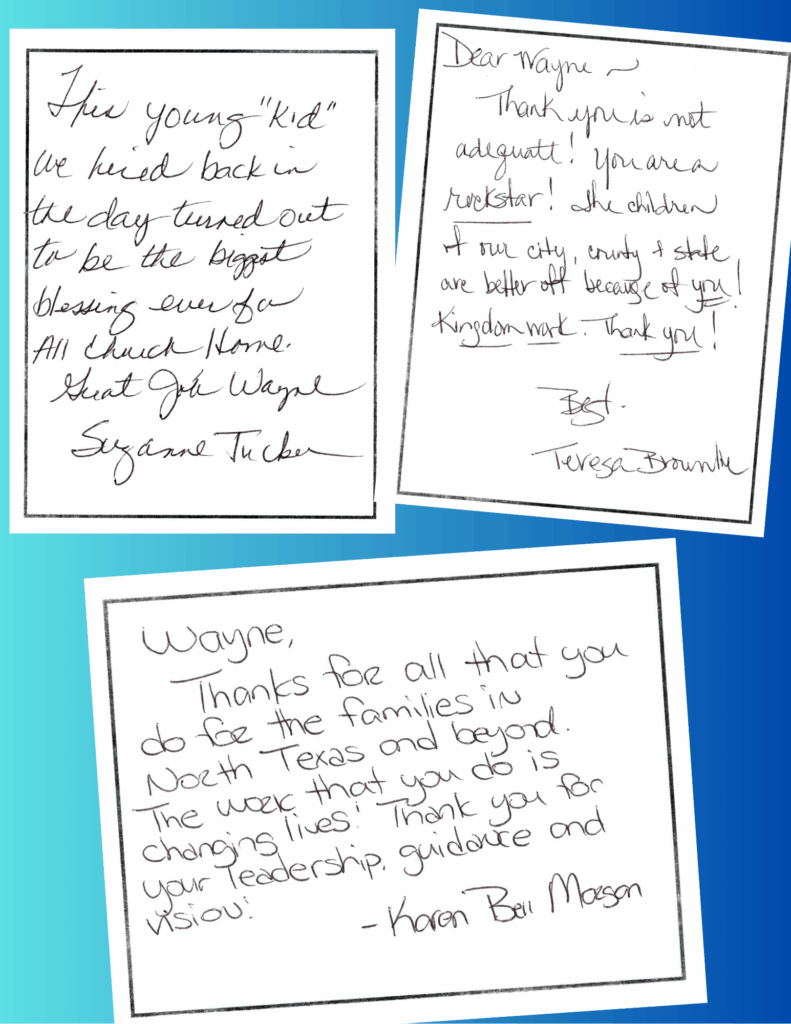 This young "Kid"
we hired back in
the day turned out
to be the biggest
blessing ever for
All Church Home.
Great Job Wayne
Suzanne Tucker
Dear Wayne ~
Thank you is not
adequate! You are a
rockstar! The children
of our city, county & state
are better off because of you!
Kingdom work. Thank you!
Best.
Teresa
Wayne,
Thanks for all that you
do for the families in
North Texas and beyond.
The work that you do is
changing lives! Thank you for
your leadership, guidance and
vision!
- Karen Bell Morgan